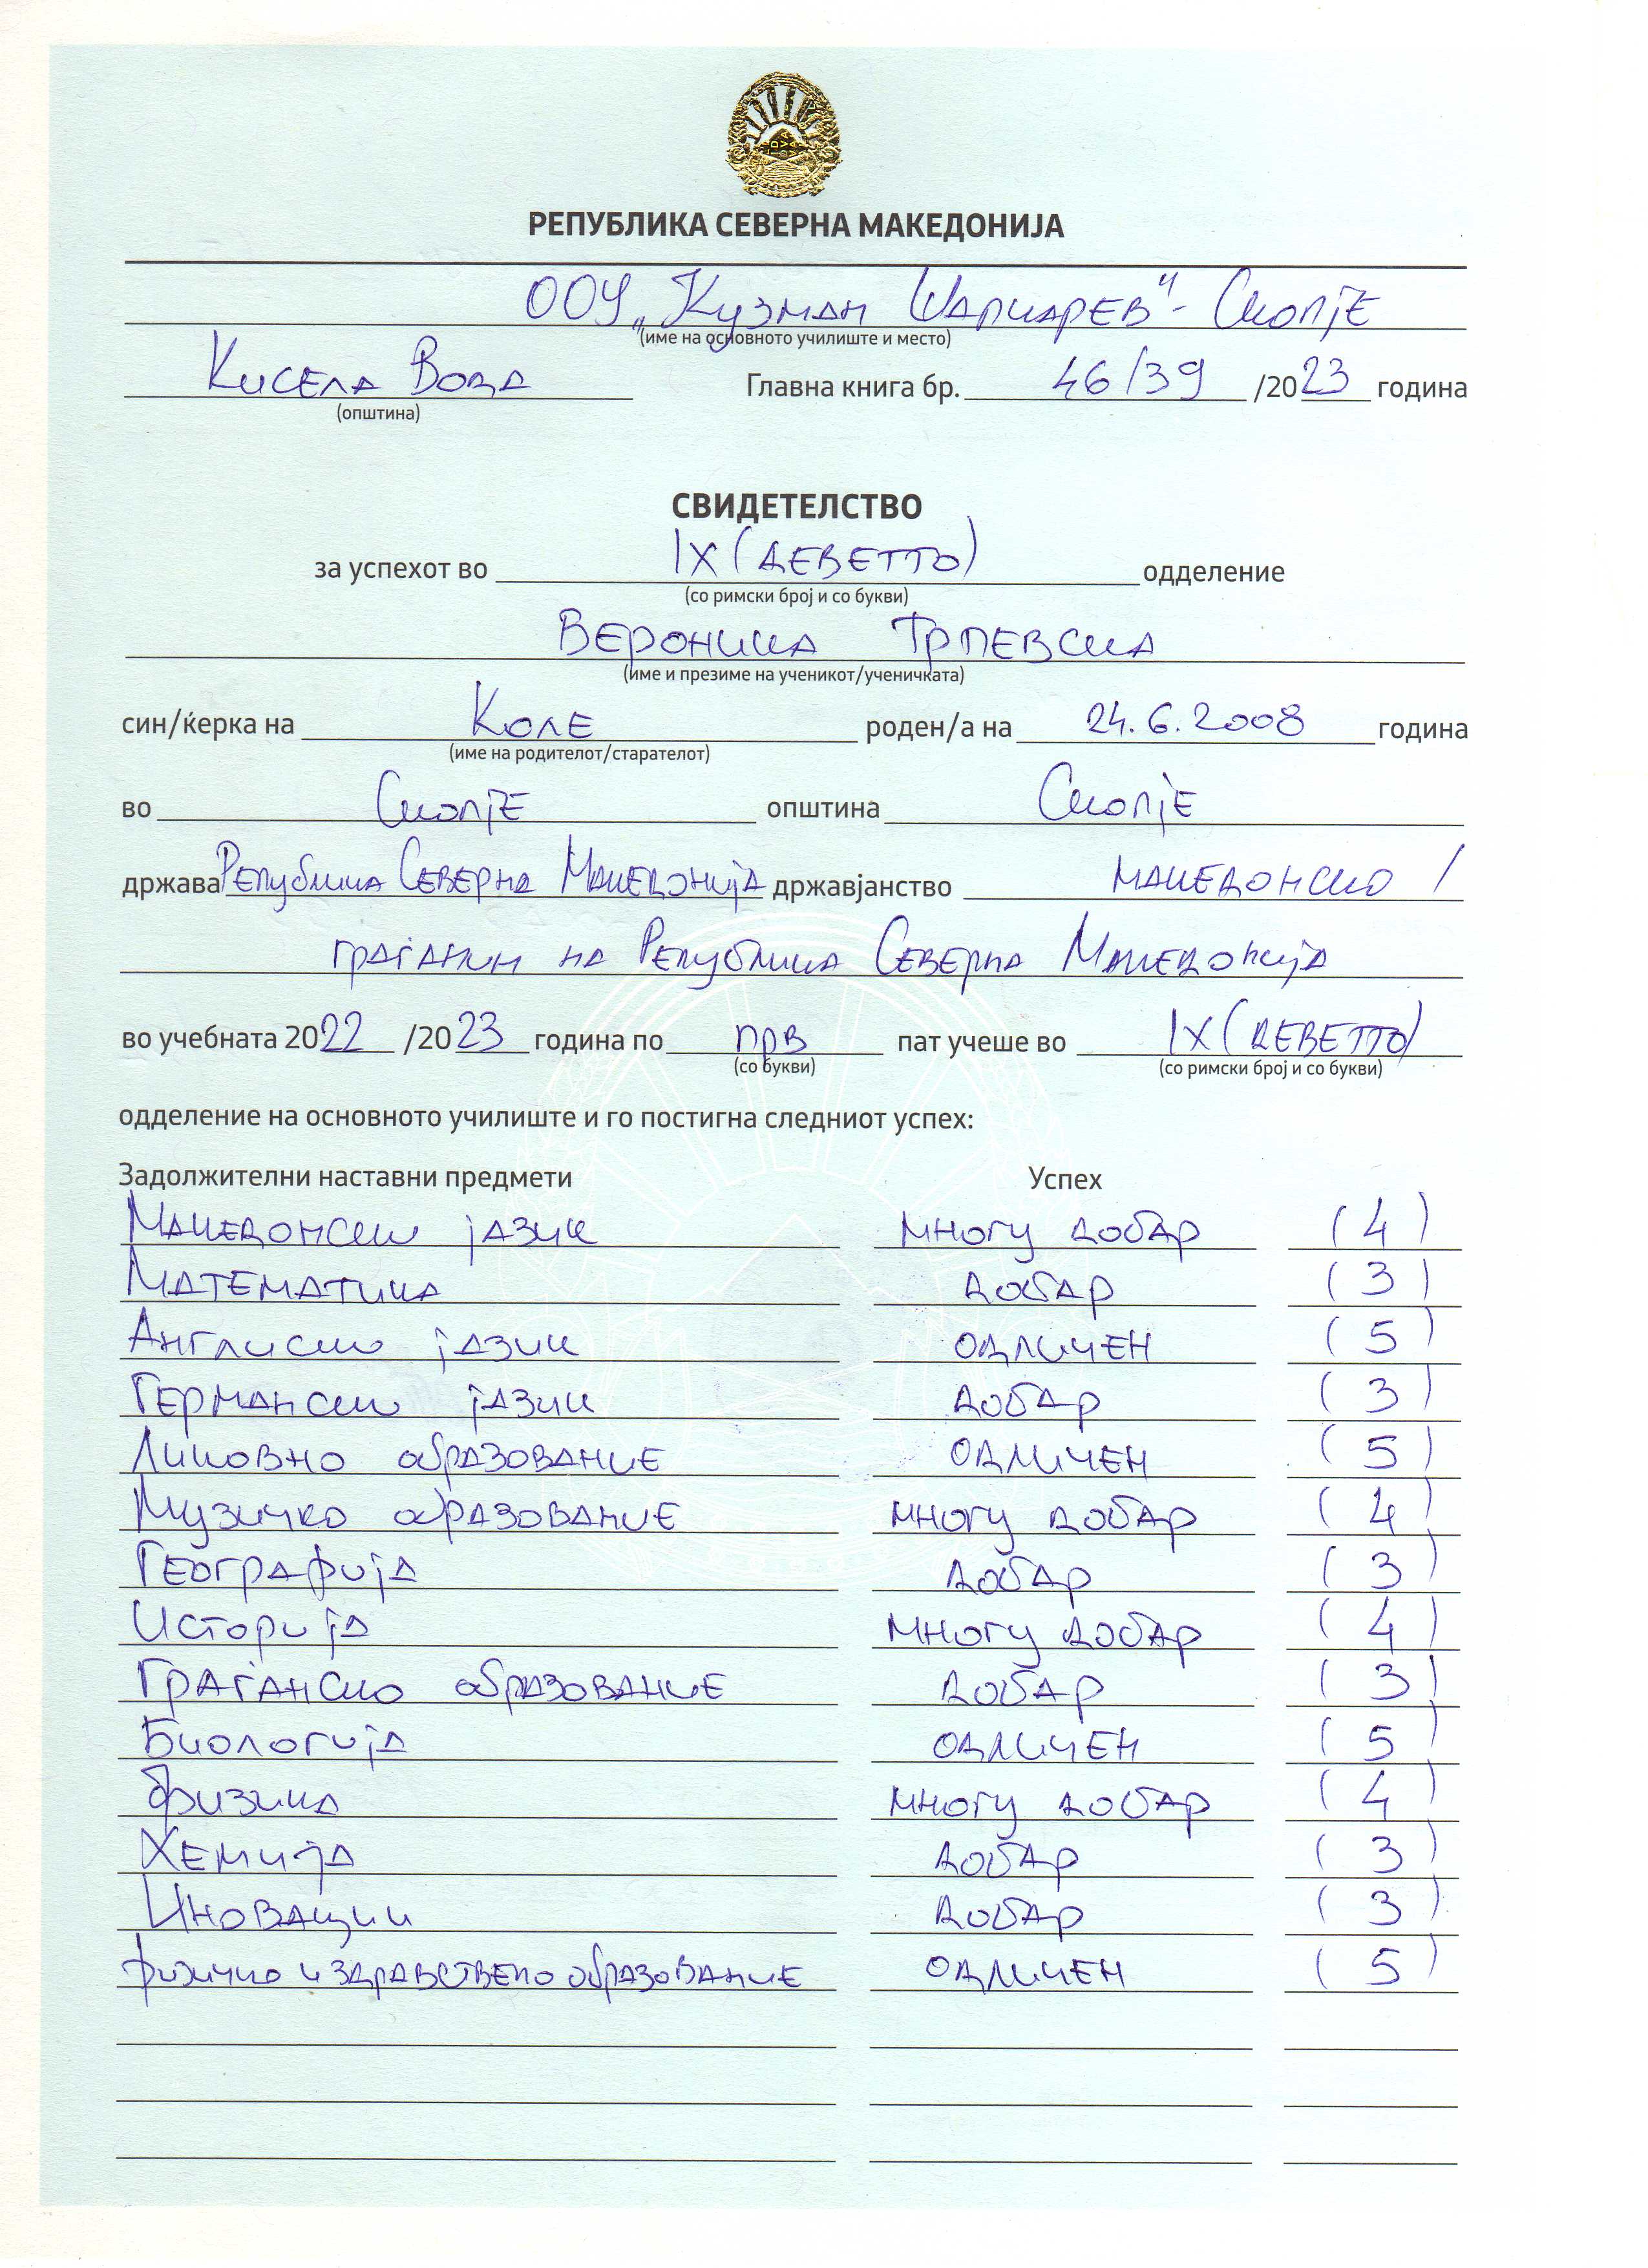 РЕПУБЛИКА СЕВЕРНА МАКЕДОНИЈА
ООУ „Кузман Шапкарев" - Скопје
(име на основното училиште и место)
Кисела Вода Главна книга бр. 46/39 /2023 година
(општина)
СВИДЕТЕЛСТВО
за успехот во IX (деветто) одделение
(со римски број и со букви)
Вероника Трпевска
(име и презиме на ученикот/ученичката)
син/ќерка на Коле роден/а на 24.6.2008 година
(име на родителот/старателот)
во Скопје општина Скопје
држава Република Северна Македонија државјанство македонско /
граѓанин на Република Северна Македонија
во учебната 2022 /2023 година по прв пат учеше во IX (деветто)
(со букви) (со римски број и со букви)
одделение на основното училиште и го постигна следниот успех:
Задолжителни наставни предмети Успех
Македонски јазик многу добар (4)
Математика добар (3)
Англиски јазик одличен (5)
Германски јазик добар (3)
Ликовно образование одличен (5)
Музичко образование многу добар (4)
Географија добар (3)
Историја многу добар (4)
Граѓанско образование добар (3)
Биологија одличен (5)
Физика многу добар (4)
Хемија добар (3)
Иновации добар (3)
Физичко и здравствено образование одличен (5)